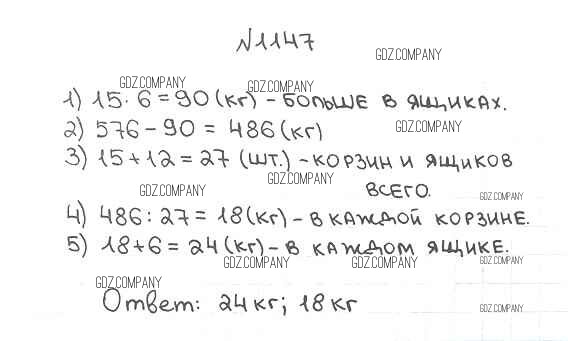 №1147
GDZ.COMPANY
GDZ.COMPANY GDZ.COMPANY
1) 15·6=90(кг)-БОЛЬШЕ В ЯЩИКАХ.
2) 576-90=486(кг)
GDZ.COMPANY
3) 15+12=27 (ШТ.)-КОРЗИН И ЯЩИКОВ
GDZ.COMPANY
ВСЕГО.
GDZ.COMPANY GDZ.COMPANY
4) 486:27=18(кг)-В КАЖДОЙ КОРЗИНЕ.
5) 18+6=24(кг)-В КАЖДОМ ЯЩИКЕ.
GDZ.COMPANY GDZ.COMPANY GDZ.COMPANY
GDZ.COMPANY
Ответ: 24кг; 18кг
GDZ.COMPANY